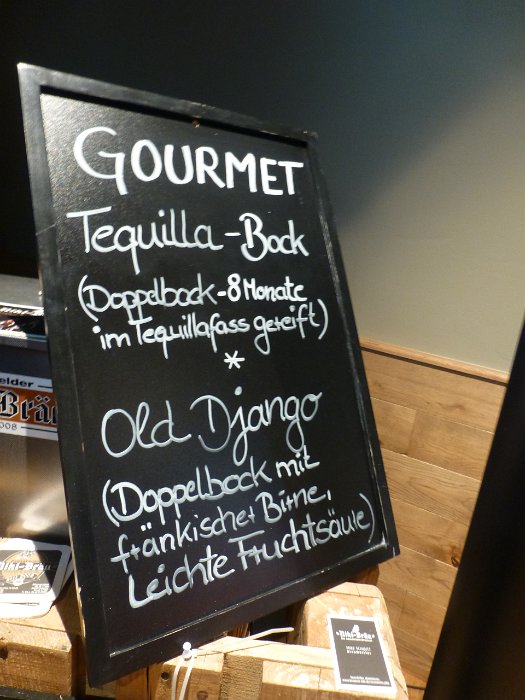 GOURMET
Tequilla-Bock
(Doppelbock-8 Monate
im Tequillafass gereift)
*
Old Django
(Doppelbock mit
fränkischer Birne,
Leichte Fruchtsäure)
elder
Bräu
008
Niki-Bräu
Niki-Bräu